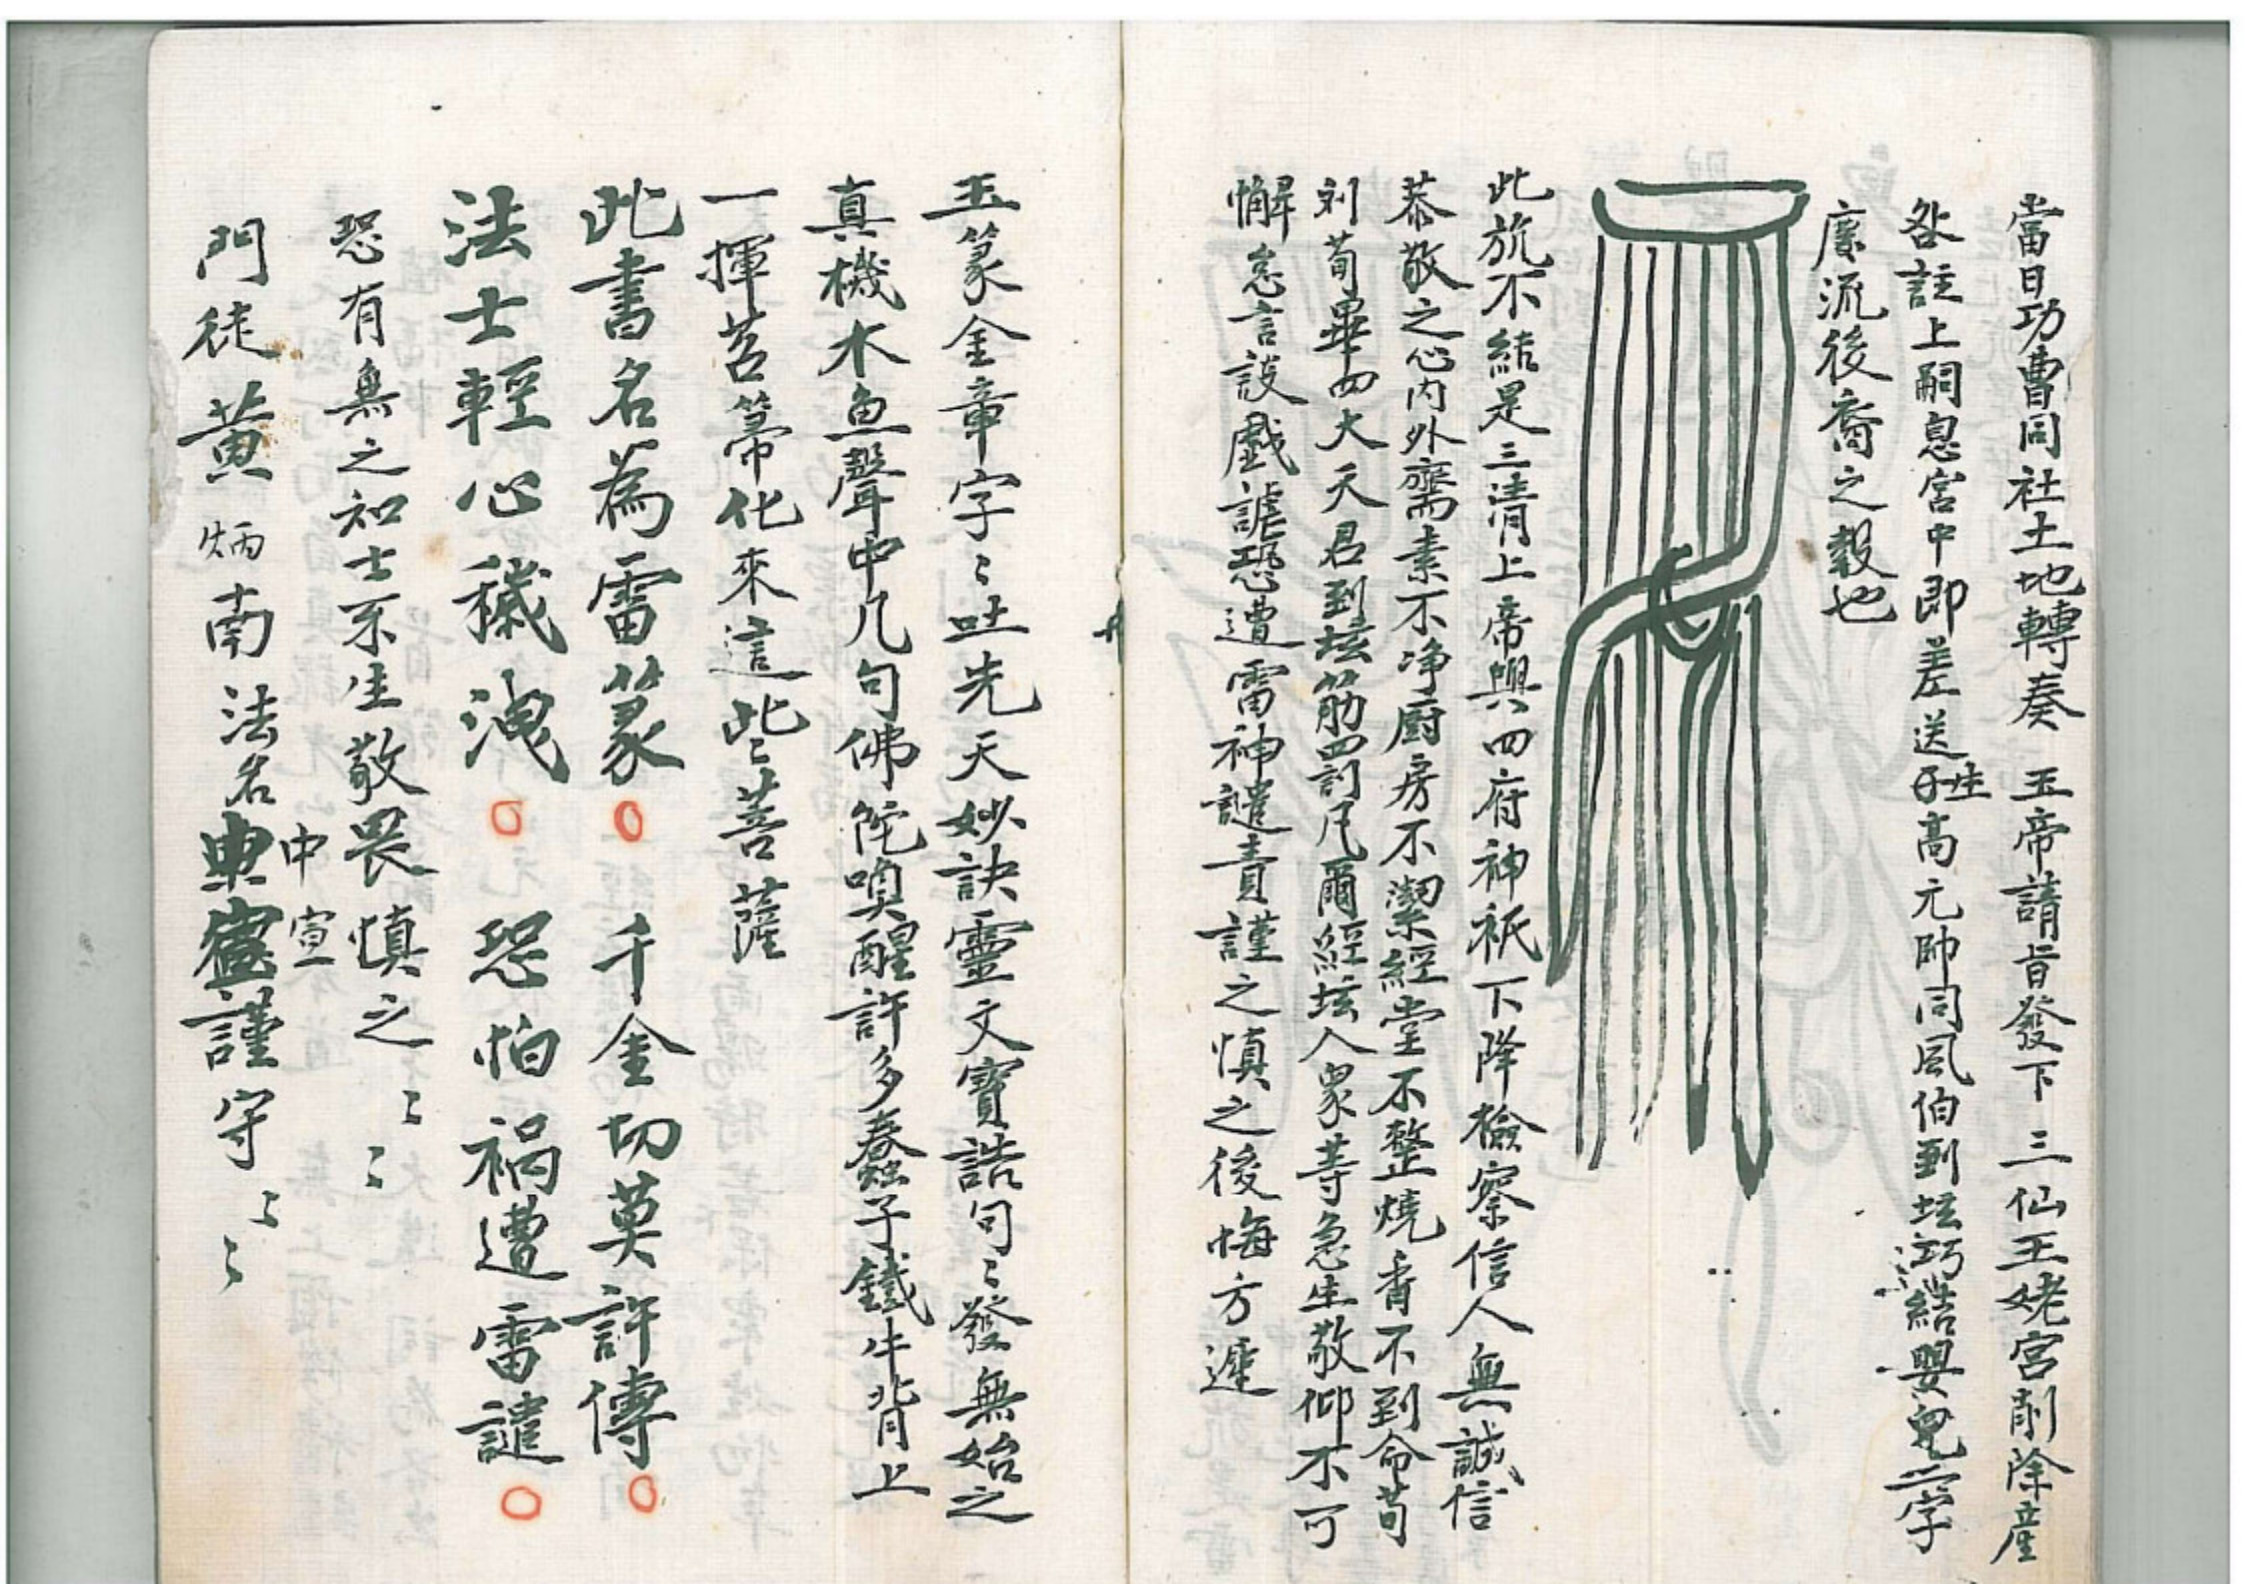 當日功曹同社土地轉奏 玉帝請旨發下 三仙王姥宮削除産
咎註上嗣息宮中即差送生子高元帥同風伯到坛巧結嬰兒二字
廕流後裔之穀也
此旂不結是三清上帝與四府神祇下降檢察信人無誠信
恭敬之心內外齋素不净廚房不潔經堂不整燒香不到命苟
刘苟畢四大天君到坛筋四訓凡爾經坛人衆等急生敬仰不可
懈怠言談戲謔恐遭雷神譴責謹之慎之後悔方遲
玉篆金章字〻吐先天妙訣靈文寶誥句〻發無始之
真機木魚聲中几句佛陀喚醒許多蠢子鐵牛背上
一揮苕箒化來這些〻菩薩
此書名為雷篆 千金切莫許傳
法士輕心穢洩 恐怕禍遭雷譴
恐有無之知士不生敬畏慎之〻〻
門徒黃炳南法名東中宣謹守〻〻